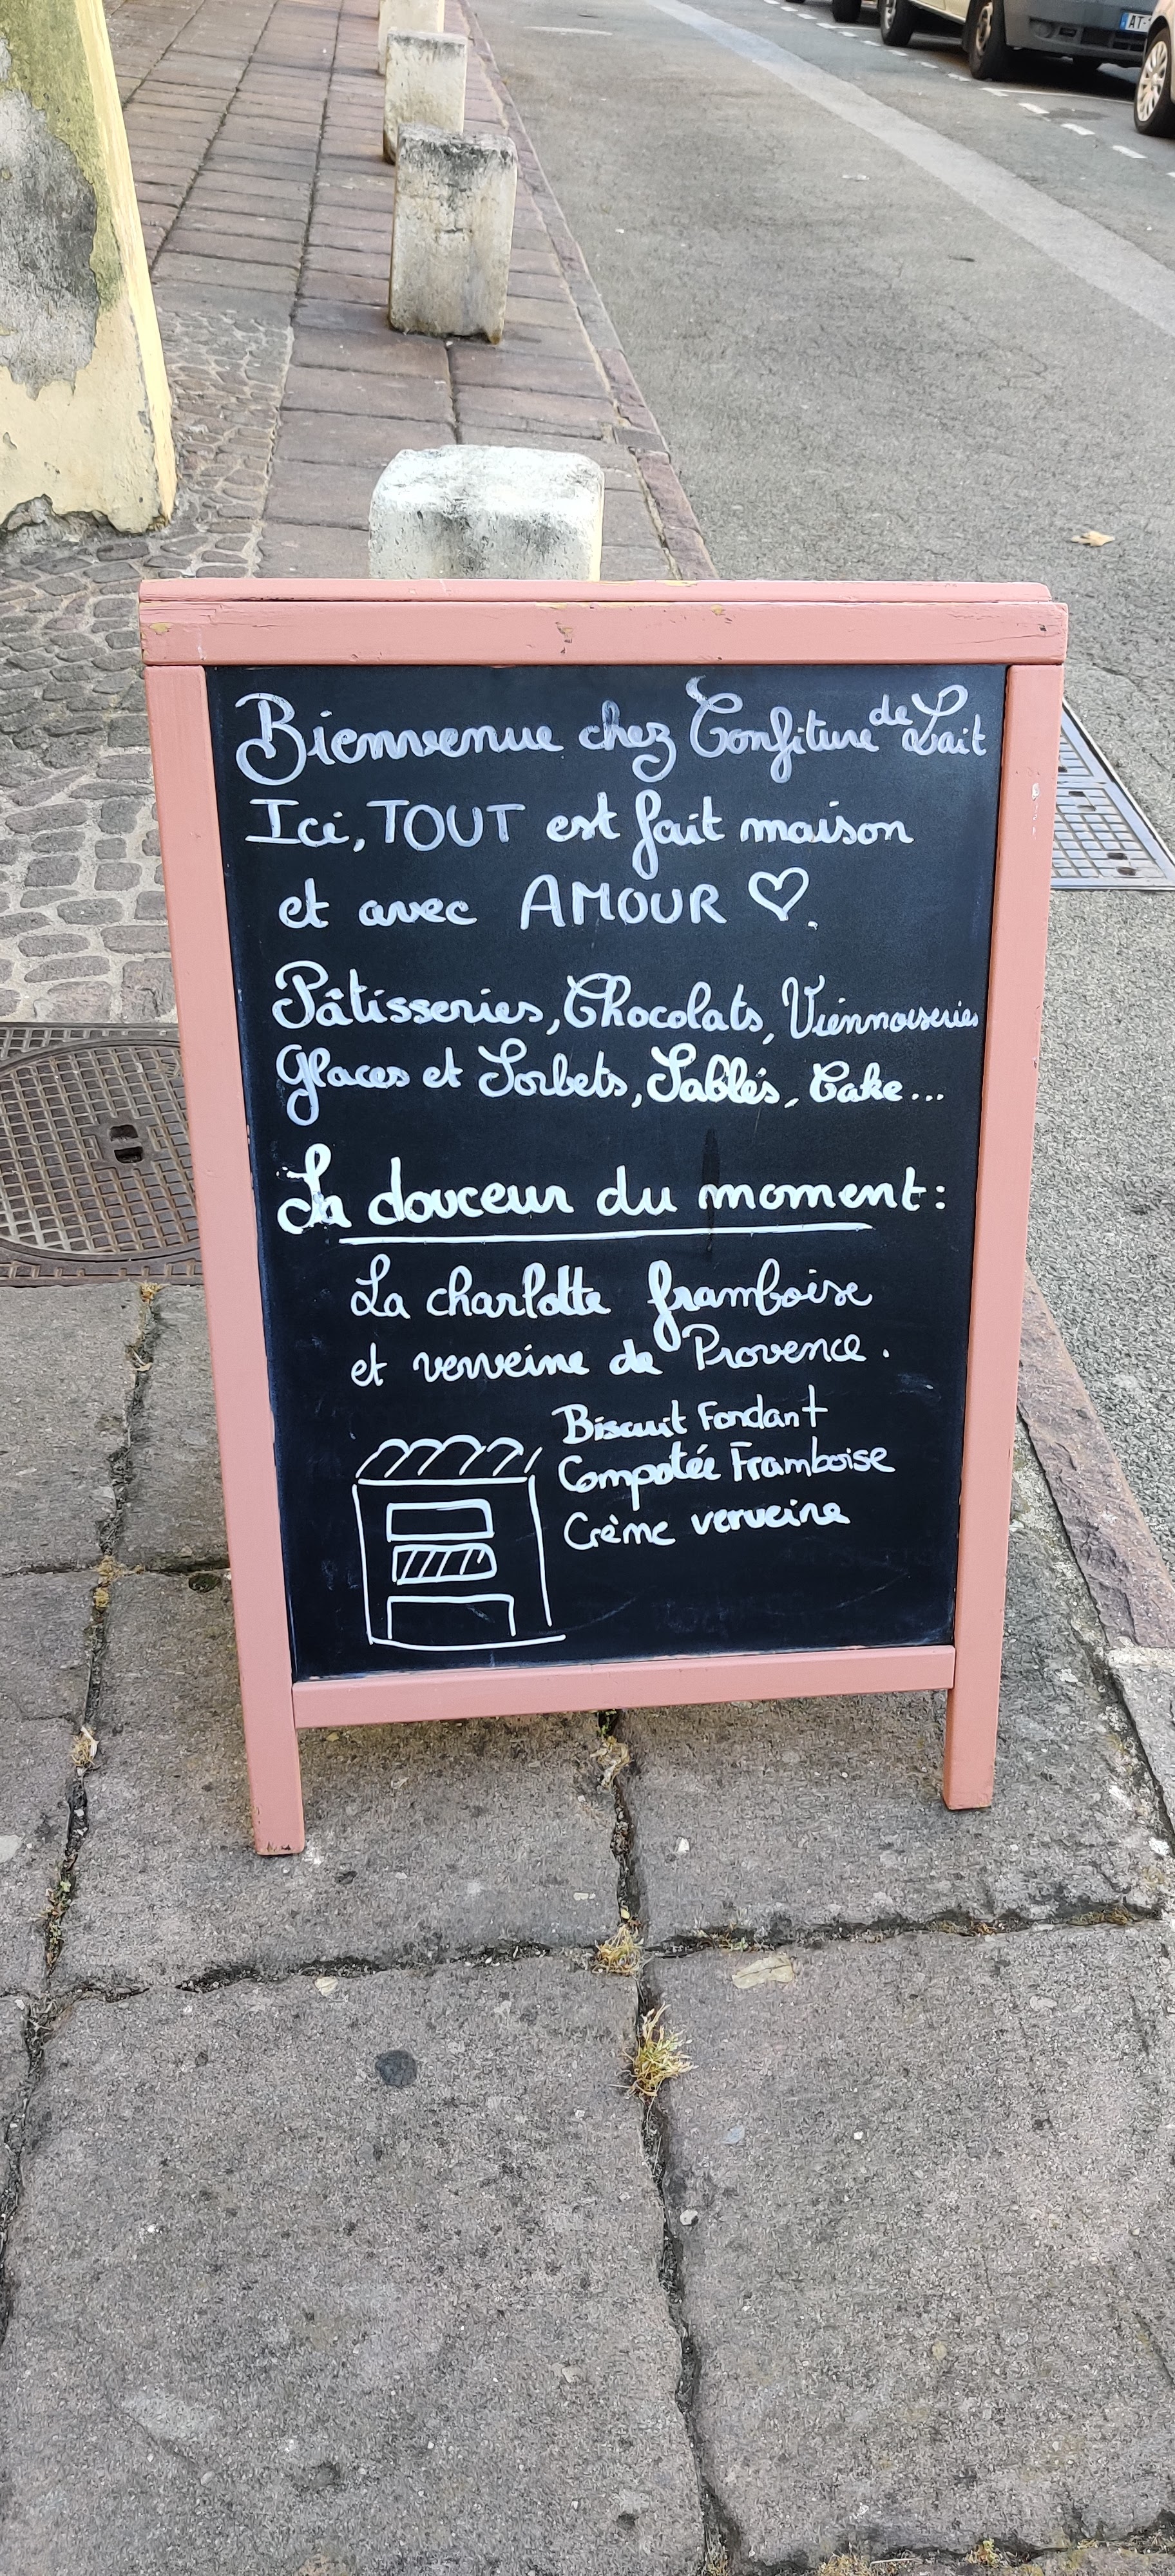 Bienvenue chez Confiture de Lait
Ici, TOUT est fait maison
et avec AMOUR ♡.
Pâtisseries, Chocolats, Viennoiseries
Glaces et Sorbets, Sablés, Cake...
La douceur du moment:
La charlotte framboise
et verveine de Provence.
Biscuit Fondant
Compotée Framboise
Crème verveine